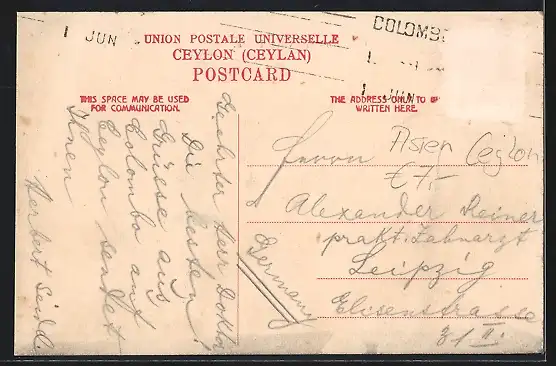 1 JUN
COLOMB
1 JUN
UNION POSTALE UNIVERSELLE
CEYLON (CEYLAN)
POSTCARD
THIS SPACE MAY BE USED
FOR COMMUNICATION.
THE ADDRESS ONLY TO
WRITTEN HERE.
Geehrter Herr Doktor
Die besten
Grüsse aus
Colombo auf
Ceylon sendet
Ihnen
Herbert
Asien Ceylon
€ 7,-
Herrn
Alexander Reiner
prakt. Zahnarzt
Leipzig
Elisenstrasse
31 II.
Germany